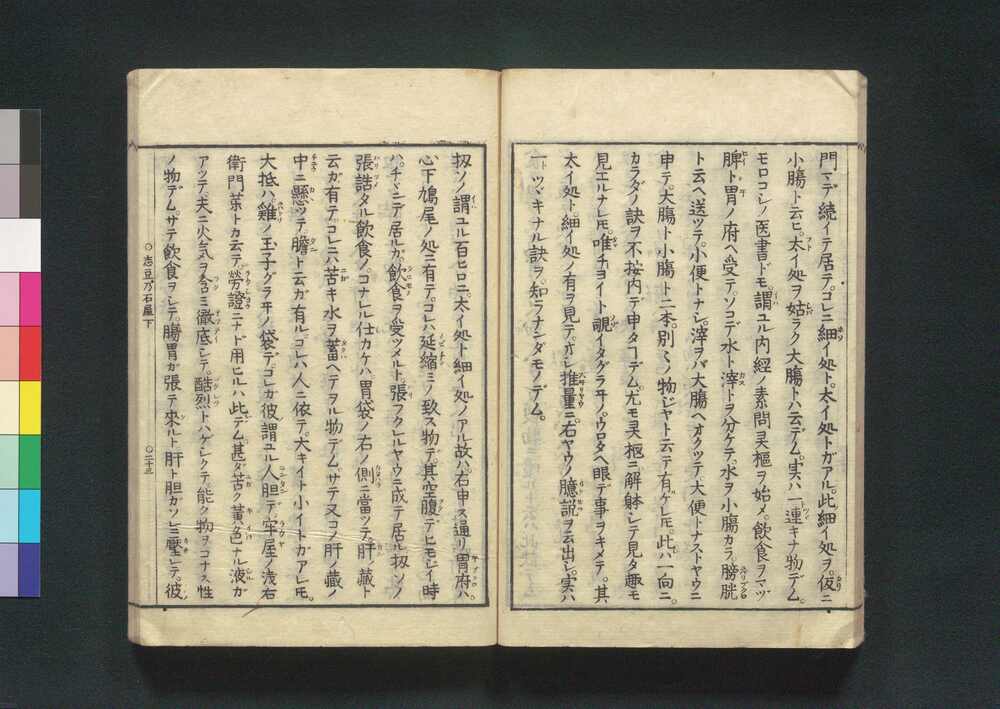 門マデ続イテ居テ。コレニ細イ処ト。太イ処トガアル。此細イ処ヲ。仮ニ
小腸ト云ヒ。太イ処ヲ姑ラク大腸トハ云デム。実ハ一連キナ物デム。
モロコシノ医書ドモ。謂ユル内経ノ素問灵樞ヲ始メ。飲食ヲマヅ
脾ト胃ノ府ヘ受テソコデ水ト滓トヲ分ケテ。水ヲ小腸カラ。膀胱
ト云ヘ送ツテ。小便トナシ。滓ヲバ大腸ヘオクツテ。大便トナストヤウニ
申テ。大腸ト小腸ト二本。別〻ノ物ジヤト云テ有ゲレ𪜈。此ハ一向ニ。
カラダノ訣ヲ不按内デ申タヿデム。尤モ灵樞ニ解躰シテ見タ趣モ
見エルナレ𪜈。唯チヨイト覗イタグラヰノ。ウロタヘ眼デ事ヲキメテ。其
太イ処ト。細イ処ノ有ヲ見テ。オシ推量ニ。右ヤウノ臆説ヲ云出シ。実ハ
一ツヾキナル訣ヲ。知ラナンダモノデム。
扨ソノ謂ユル百ヒロニ。太イ処ト細イ処ノアル故ハ右申ス通リ胃府ハ
心下鳩尾ノ処ニ有テ。コレハ延縮ミノ致ス物デ。其空腹デヒモジイ時
ハ。チヾンデ居ルガ。飲食ヲ受ツメルト。張フクレルヤウニ成テ居ル扨ソノ
張詰タル飲食ノ。コナレル仕カケハ胃袋ノ右ノ側ニ當ツテ。肝ノ藏ト
云ガ有テ。コレニハ苦キ水ヲ蓄ヘテヲル物デム。サテ又コノ肝ノ藏ノ
中ニ懸ツテ。膽ト云ガ有ルコレハ人ニ依テ。大キイト小イトガアレ𪜈。
大抵ハ。雞ノ玉子グラヰノ袋デ。コレガ彼ノ謂ユル人胆デ。牢屋ノ浅右
衛門薬トカ云テ。勞證ニナド用ヒルハ此デム甚ダ苦ク黄色ナル液ガ
アツテ。夫ニ火気ヲ含ミ徹底シテ。酷烈トハゲシクテ。能ク物ヲコナス性
ノ物デム。サテ飲食ヲシテ。腸胃ガ張テ來ルト肝ト胆ガソレニ壓レテ。彼
○志豆乃石屋下
○二十三